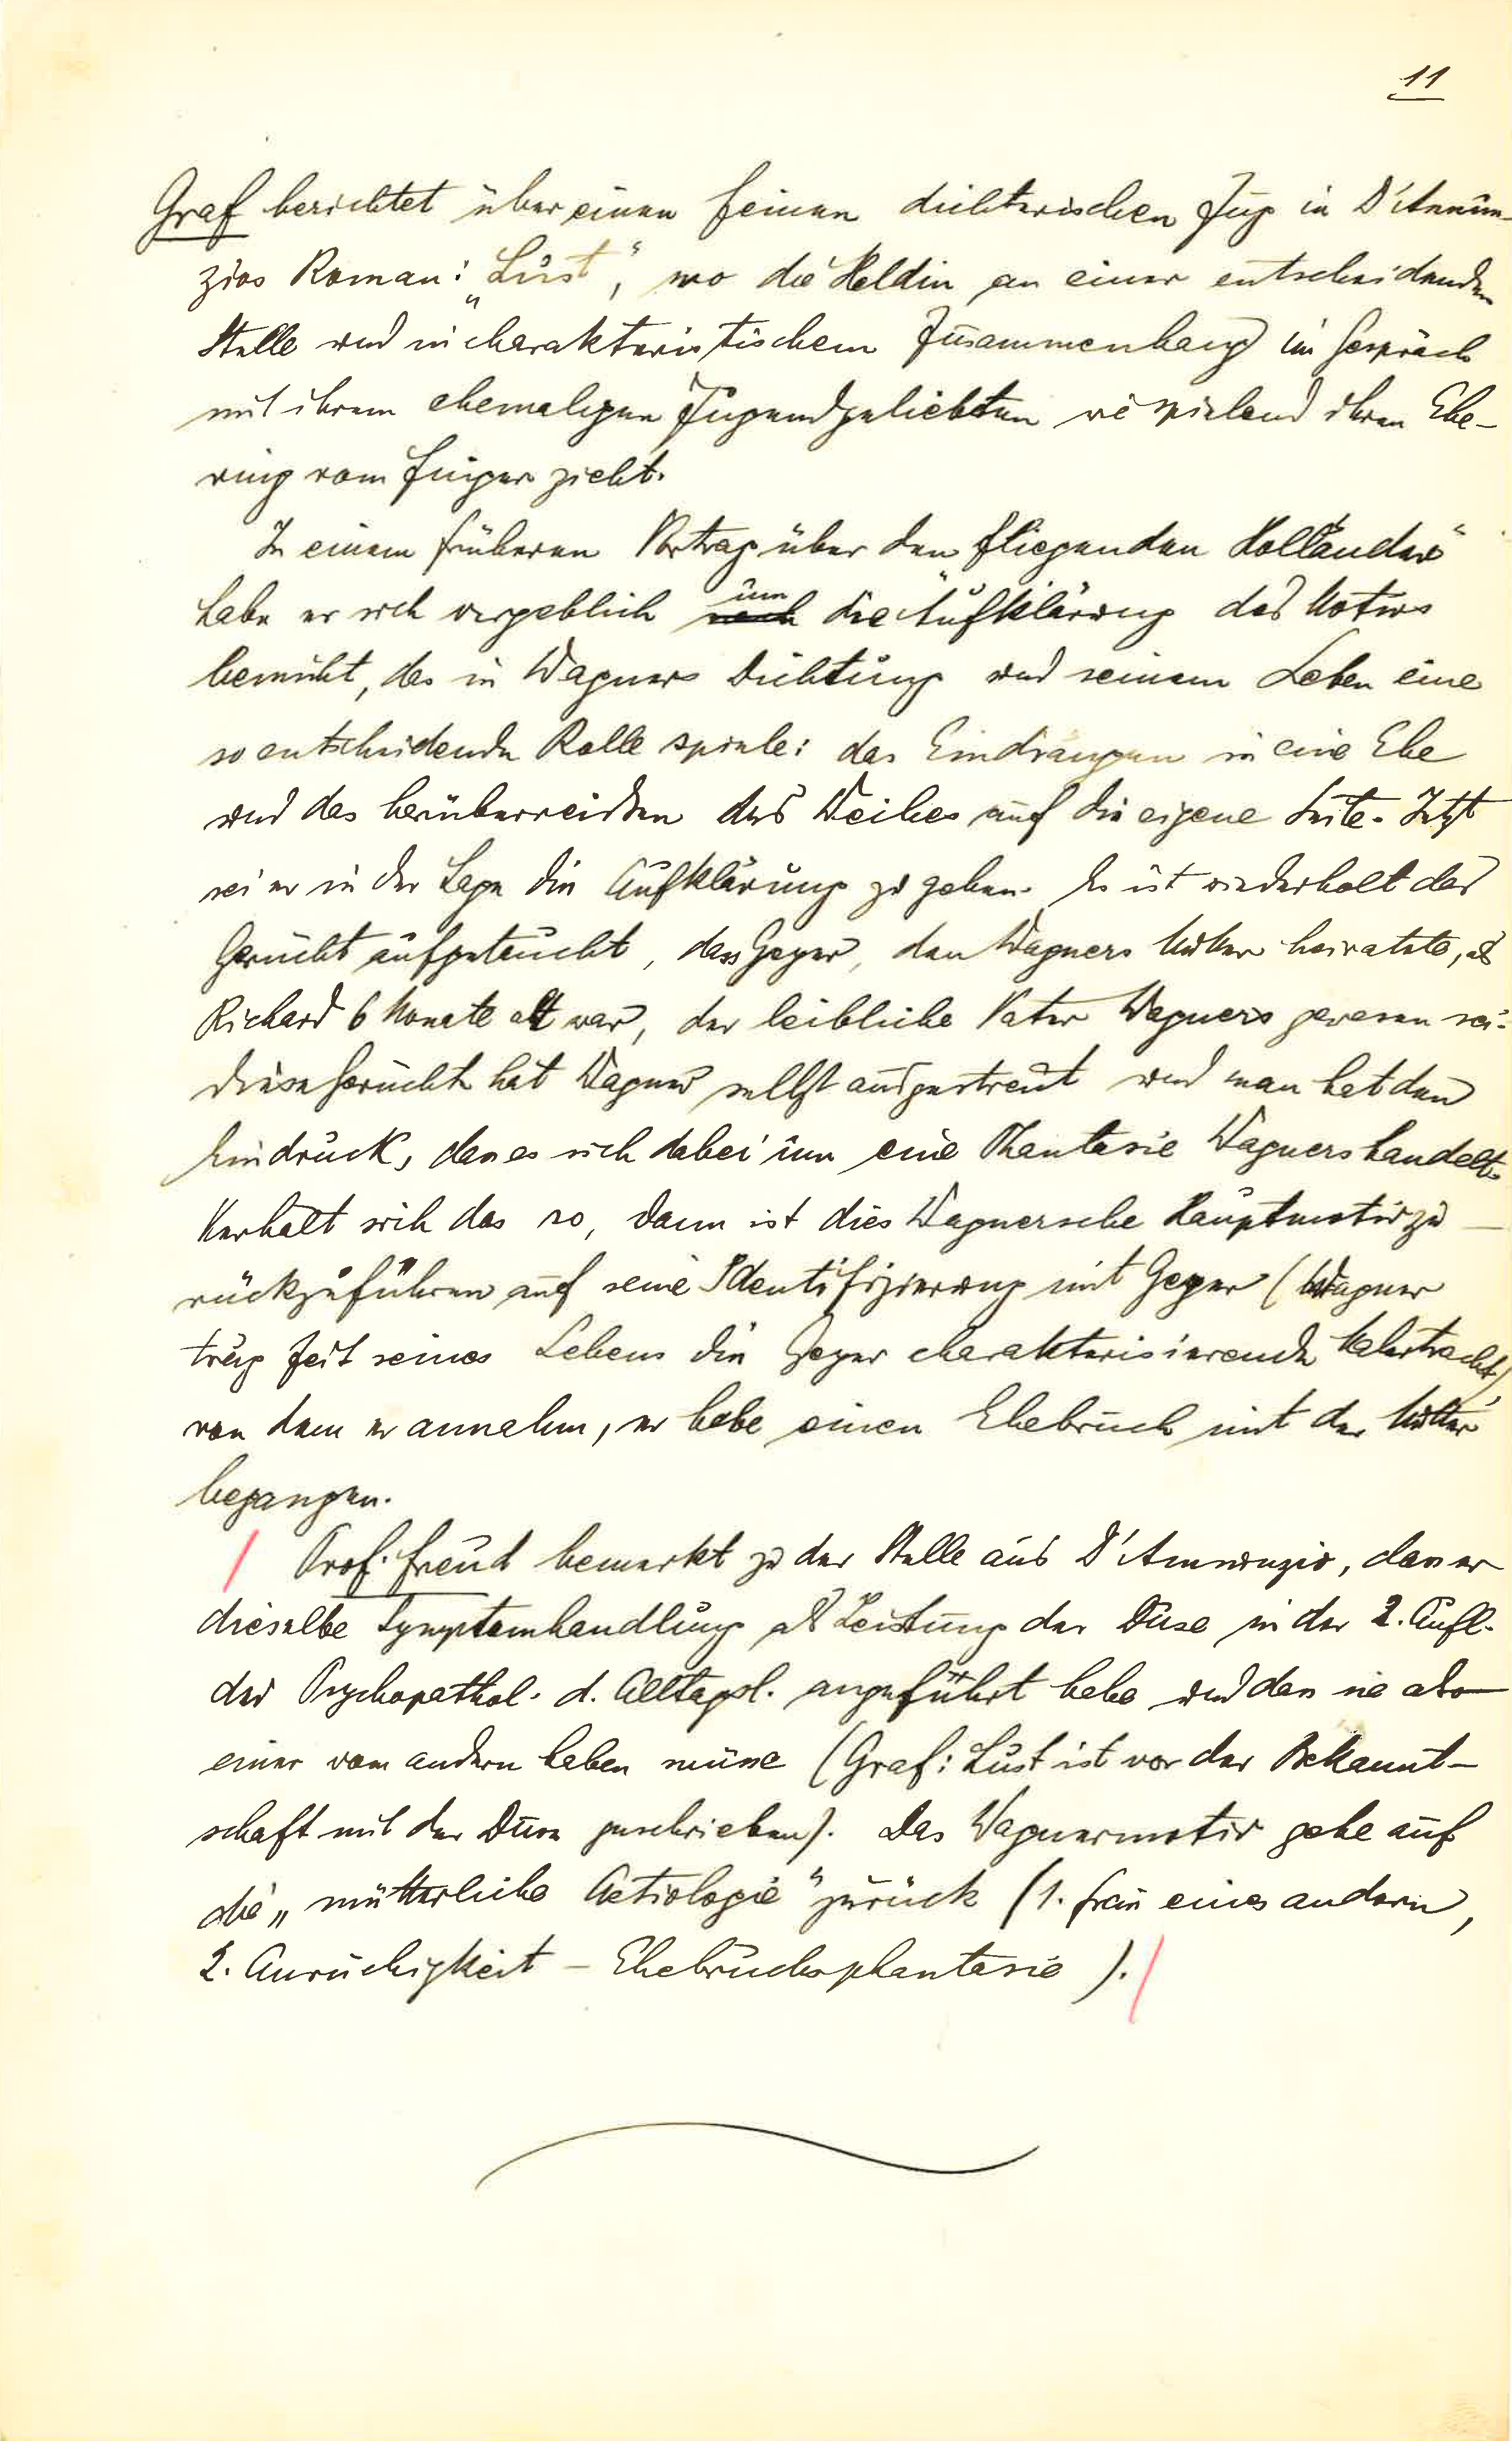 11
Graf berichtet über einen feinen dichterischen Zug in D'Annun-
zios Roman: „Lust", wo die Heldin an einer entscheidenden
Stelle und in charakteristischem Zusammenhang im Gespräch
mit ihrem ehemaligen Jugendgeliebten wie spielend ihren Ehe-
ring vom Finger zieht.
In einem früheren Vortrag über den „fliegenden Holländer"
habe er sich vergeblich um die Aufklärung des Motivs
bemüht, das in Wagners Dichtung und seinem Leben eine
so entscheidende Rolle spiele: das Eindrängen in eine Ehe
und das herüberreissen des Weibes auf die eigene Seite. Jetzt
sei er in der Lage die Aufklärung zu geben. Es ist wiederholt das
Gerücht aufgetaucht, dass Geyer, den Wagners Mutter heiratete, als
Richard 6 Monate alt war, der leibliche Vater Wagners gewesen sei.
Diese Gerüchte hat Wagner selbst ausgestreut und man hat den
Eindruck, dass es sich dabei um eine Phantasie Wagners handelt.
Verhält sich das so, dann ist dies Wagnersche Hauptmotiv zu-
rückzuführen auf seine Identifizierung mit Geyer (Wagner
trug Zeit seines Lebens die Geyer charakterisierende Malertracht),
von dem er annahm, er habe einen Ehebruch mit der Mutter
begangen.
Prof. Freud bemerkt zu der Stelle aus D'Annunzio, dass er
dieselbe Symptomhandlung als Leistung der Duse in der 2. Aufl.
der Psychopathol. d. Alltagsl. angeführt habe und dass sie also
einer vom andern haben müsse (Graf: Lust ist vor der Bekannt-
schaft mit der Duse geschrieben). Das Wagnermotiv gehe auf
die „mütterliche Aetiologie" zurück (1. Frau eines andern,
2. Anrüchigkeit – Ehebruchsphantasie).